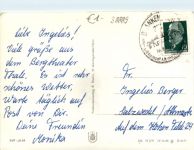 €1
S 8885
Liebe Ingelies!
Viele Grüße aus
dem Bergtheater
Thale. Es ist sehr
schönes Wetter.
Warte täglich auf
Post von Dir.
Deine Freundin
Monika
Frl.
Ingelies Berger
Salzwedel / Altmark
Auf dem Hohen Felde 29